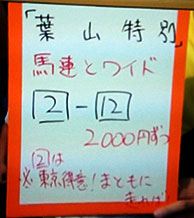 「葉山特別」
馬連とワイド
2-12
2000円ずつ
2は
※東京得意!まともに
走れば